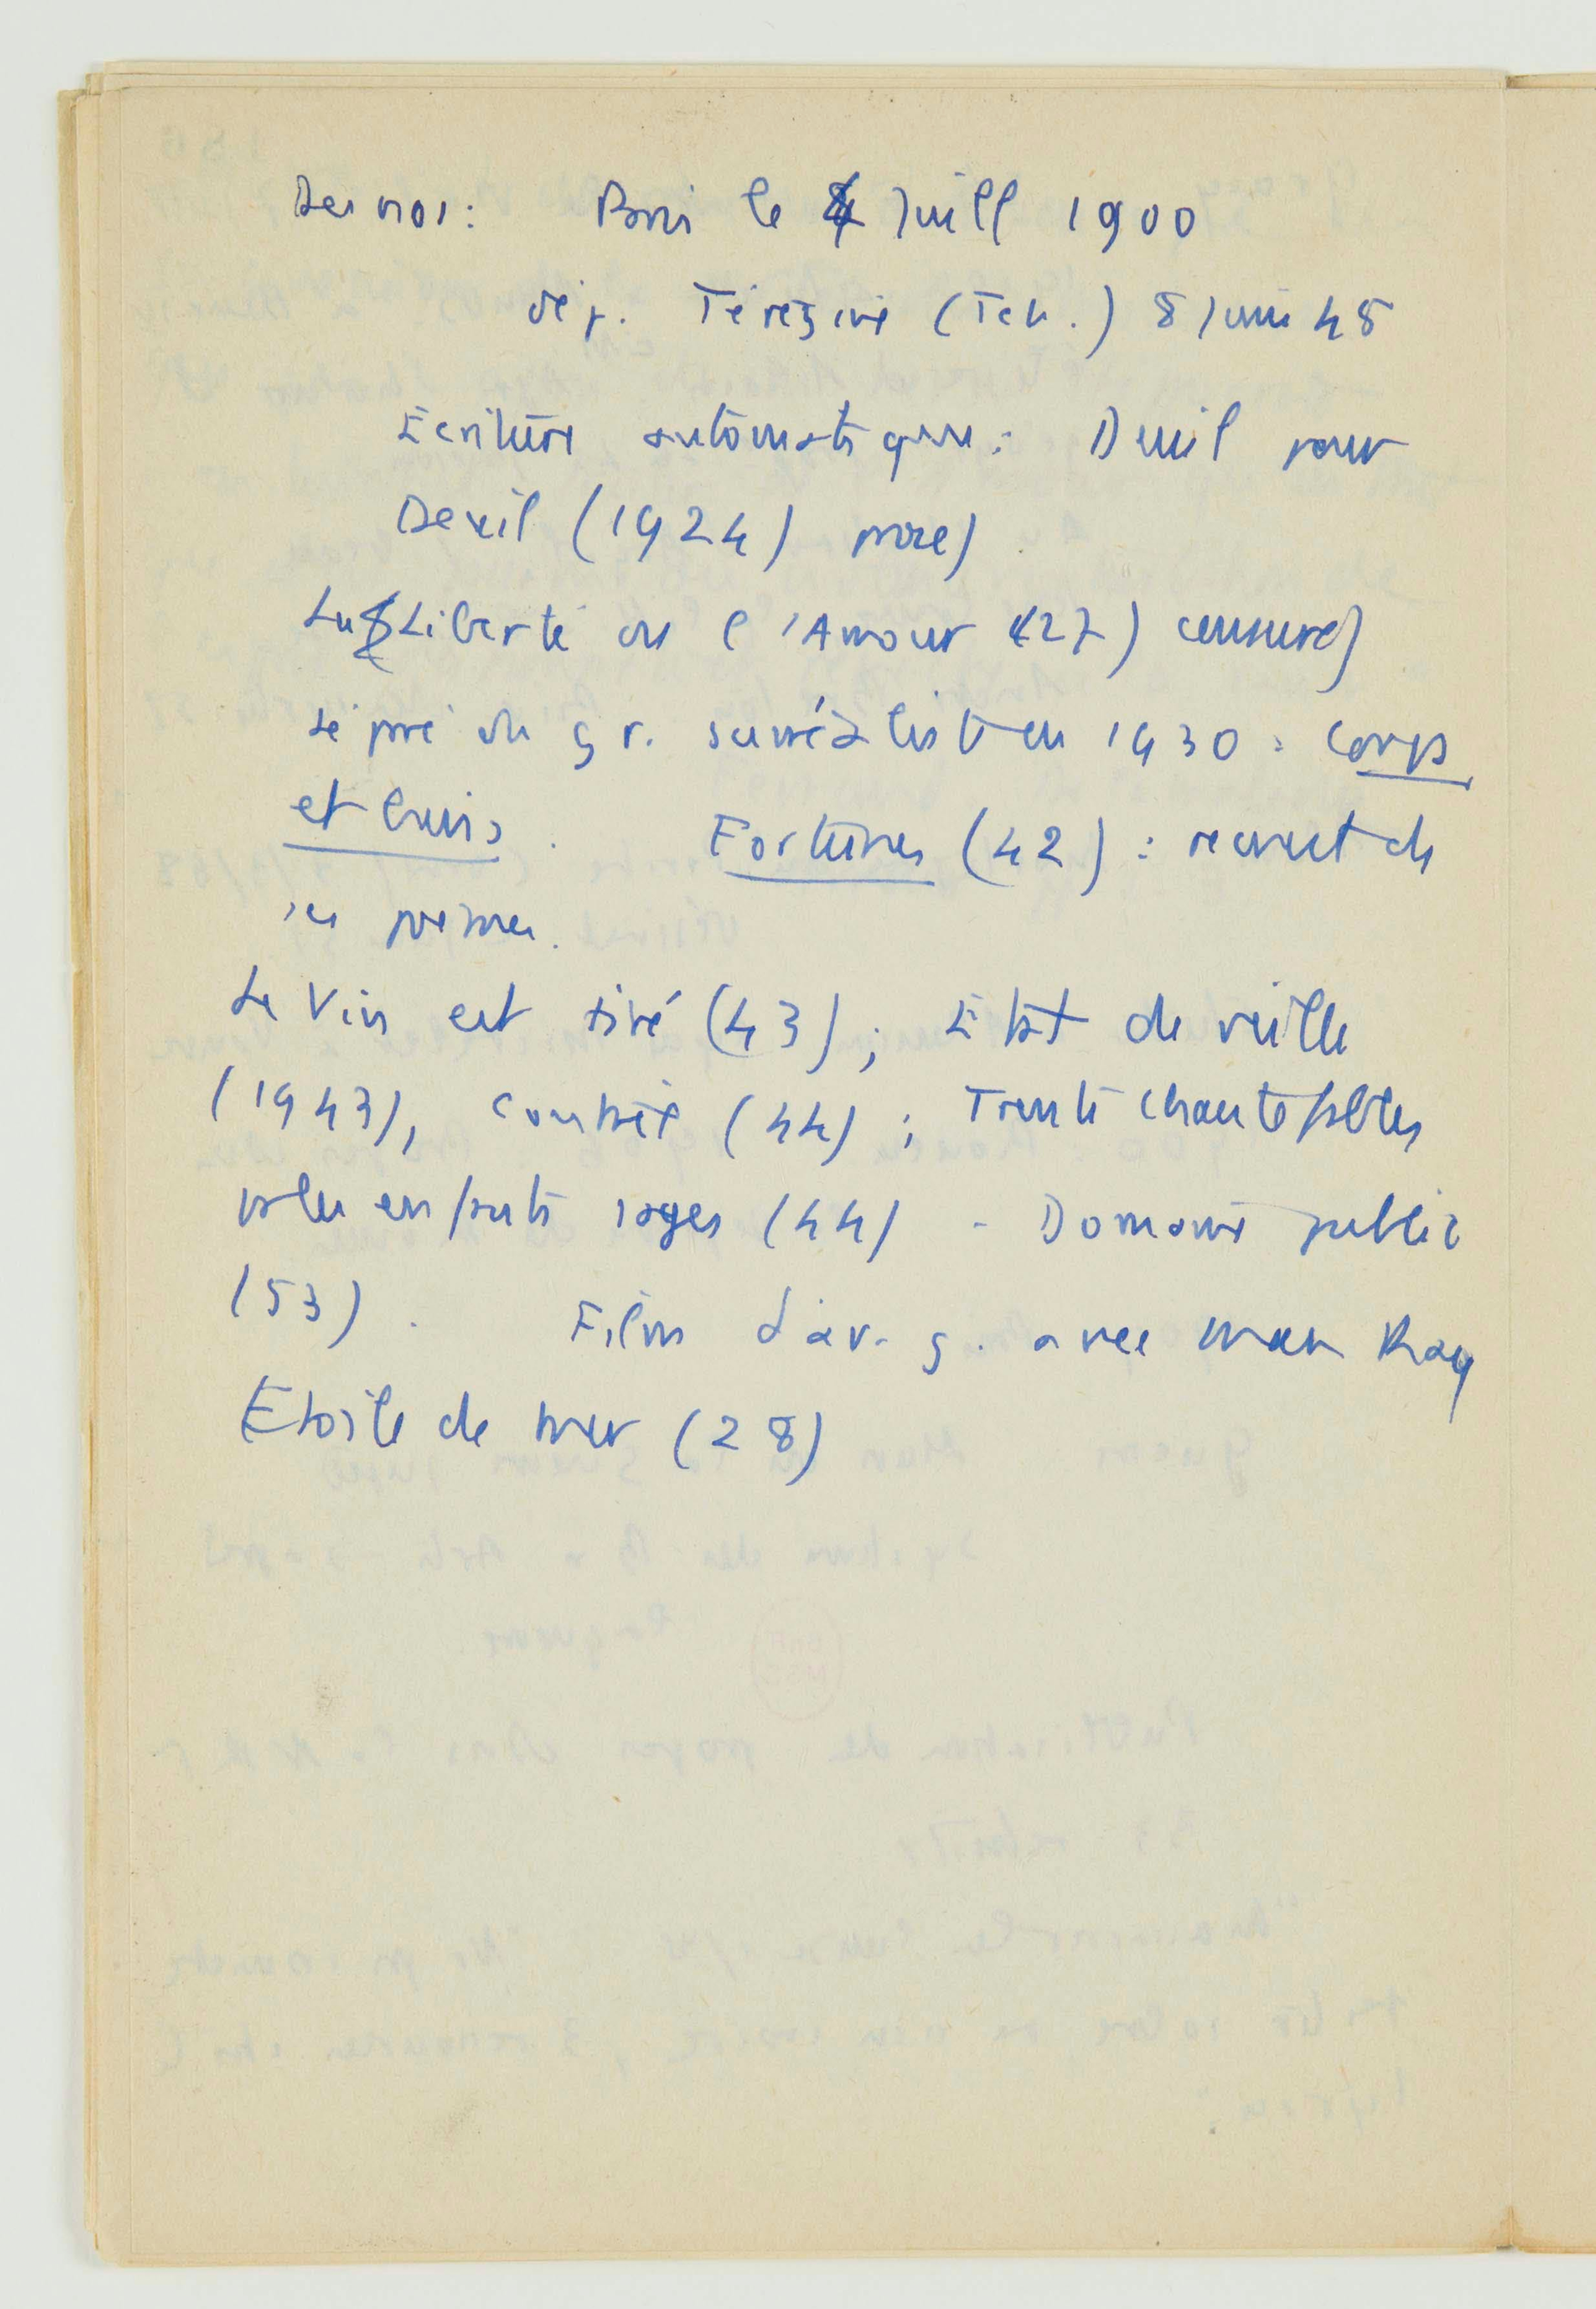 Desnos : Paris le 4 Juill 1900
dép. Térézine (Tch.) 8 juin 45
Ecriture automatique : Deuil pour
Deuil (1924) prose)
La Liberté ou l'Amour (27) censuré)
séparé du gr. surréaliste en 1930 : Corps
et biens. Fortunes (42) : recueil de
ses poèmes.
Le Vin est tiré (43) ; Etat de veille
(1943), Contrée (44) ; Trente chantefables
pour enfants sages (44) - Domaine public
(53). Films d'av. g. avec Man Ray
Etoile de mer (28)